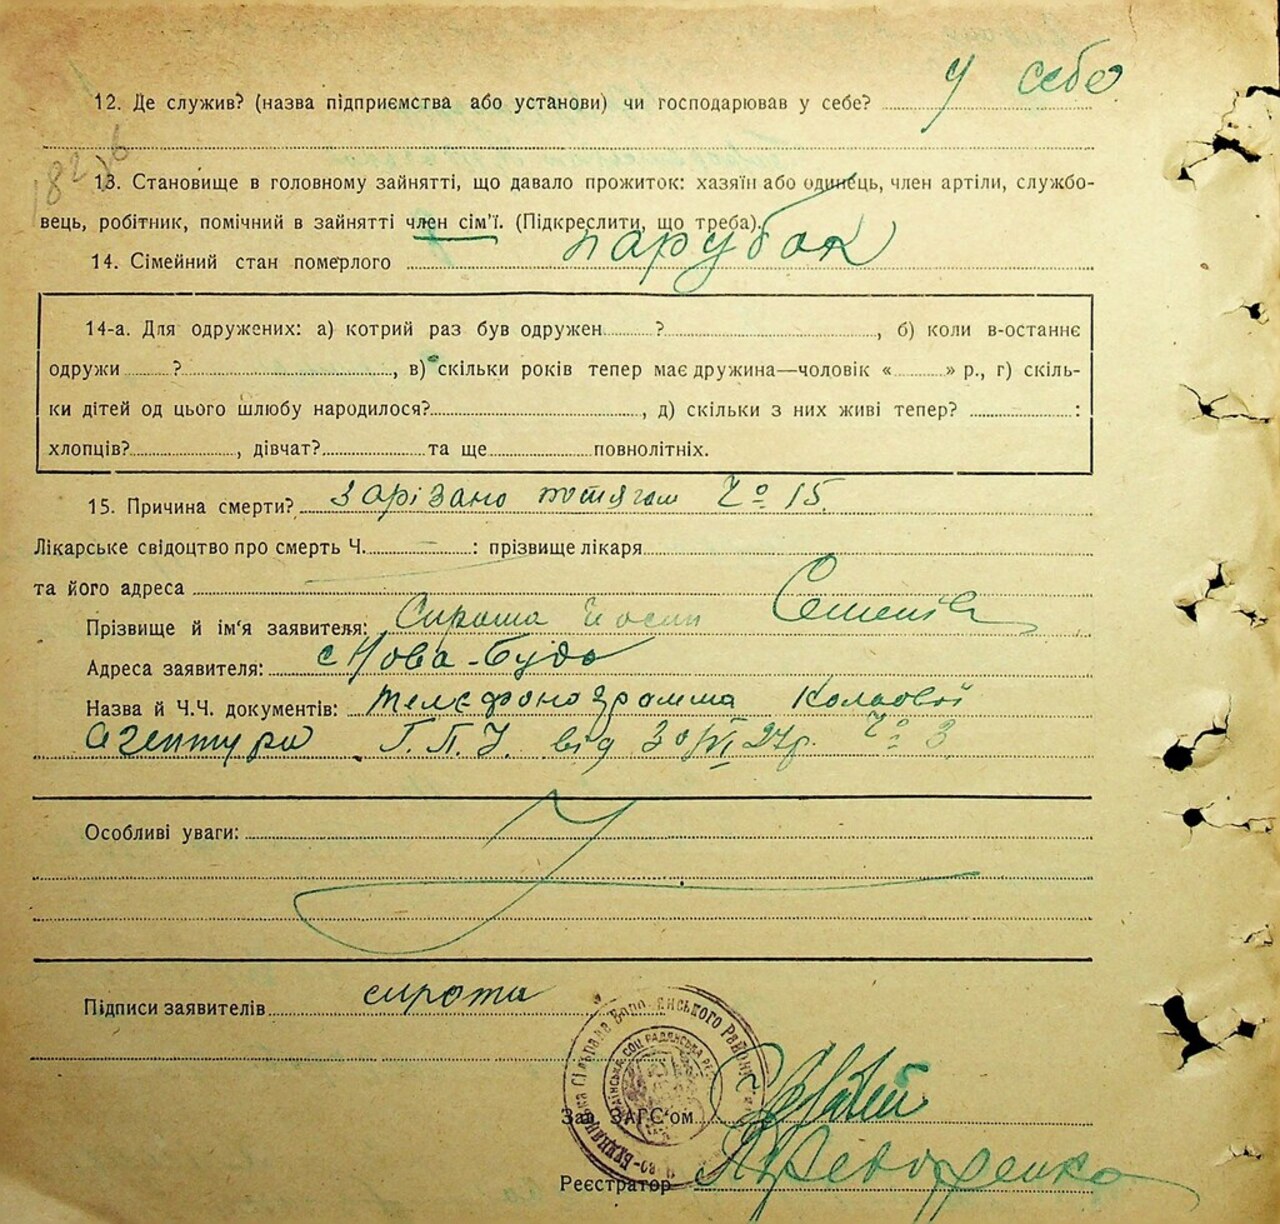 у себе
12. Де служив? (назва підприємства або установи) чи господарював у себе?
182
13. Становище в головному зайнятті, що давало прожиток: хазяїн або одинець, член артіли, службо-
вець, робітник, помічний в зайнятті член сім'ї. (Підкреслити, що треба).
14. Сімейний стан померлого парубок
14-а. Для одружених: а) котрий раз був одружен ? , б) коли в-останнє
одружи ? , в) скільки років тепер має дружина—чоловік « » р., г) скіль-
ки дітей од цього шлюбу народилося? , д) скільки з них живі тепер? :
хлопців? , дівчат? та ще повнолітніх.
15. Причина смерти? Зарізано потягом Ч° 15.
Лікарське свідоцтво про смерть Ч. — : прізвище лікаря
та його адреса
Прізвище й ім'я заявителя: Сирота Йосип Семенів
Адреса заявителя: с Нова-Буда
Назва й Ч.Ч. документів: телефонограмма
Агентури Г.П.У. від 30/VI 27р. Ч° 3
Особливі уваги:
Підписи заявителів сирота
Сільрада Бородянського Району
СОЦ. РАДЯНСЬКА РЕС
Зав. ЗАГС'ом
Реєстратор